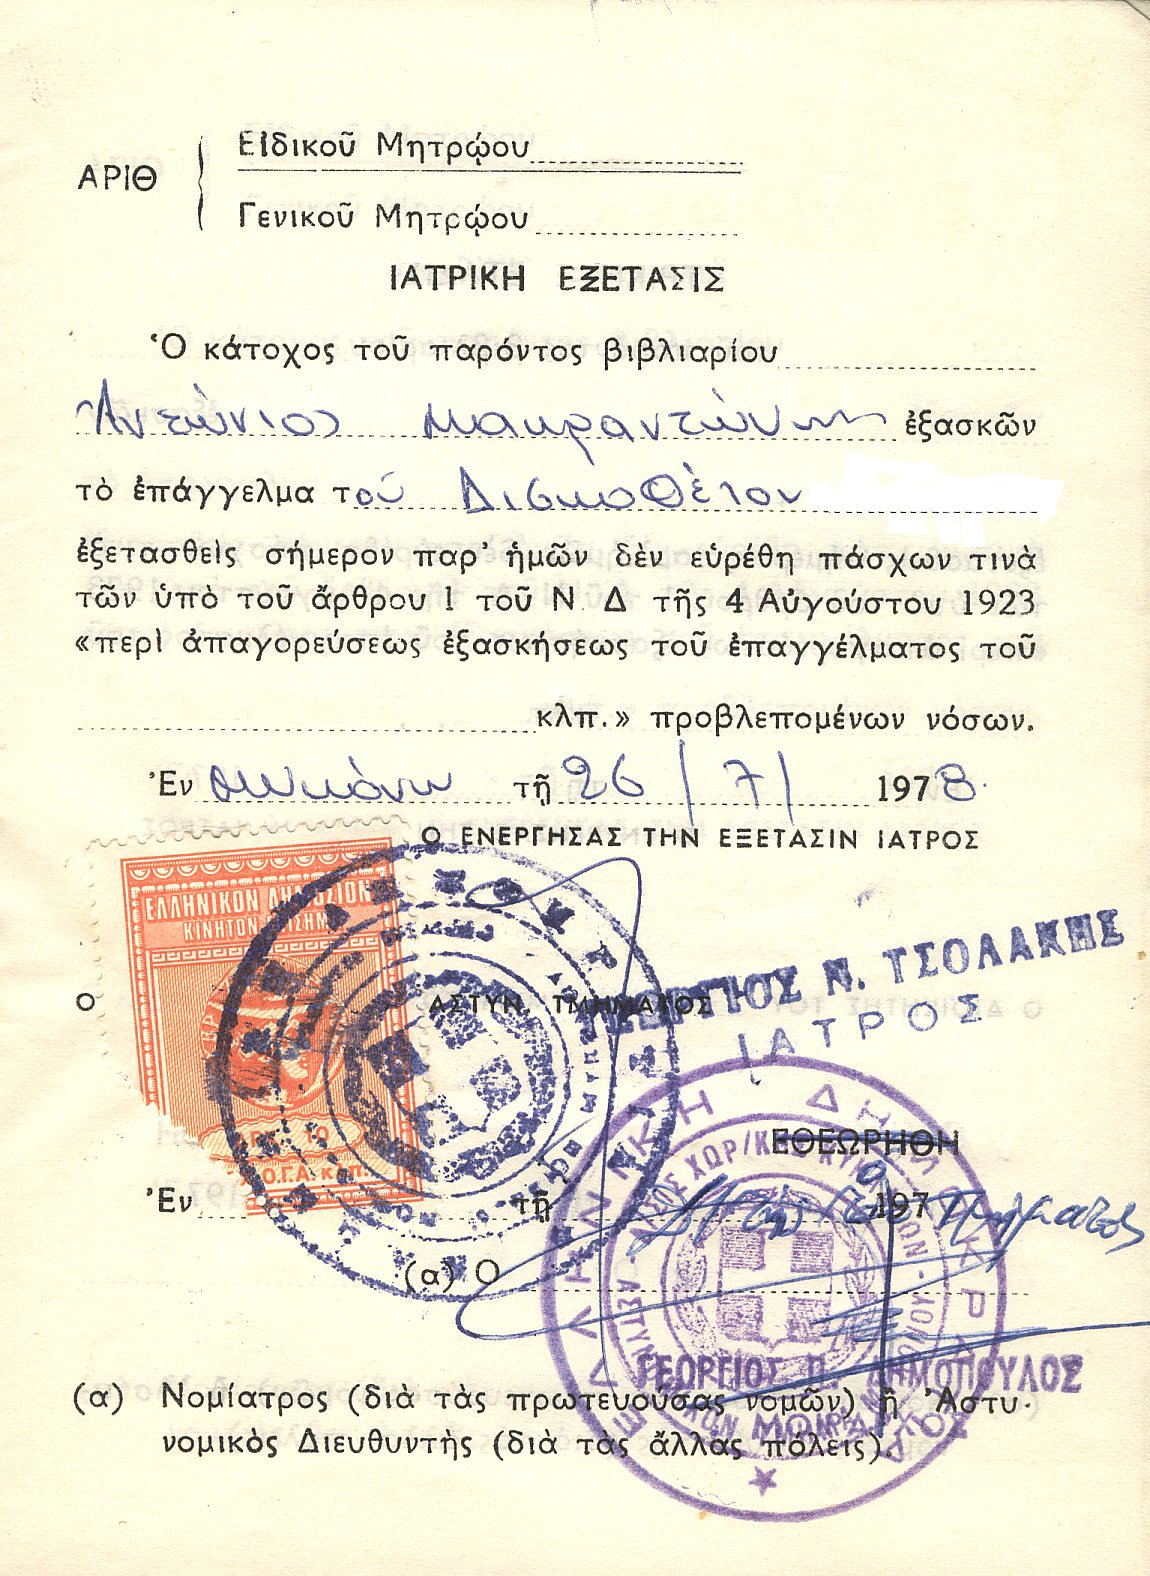 ΑΡΙΘ
Εἰδικοῦ Μητρῴου
Γενικοῦ Μητρῴου
ΙΑΤΡΙΚΗ ΕΞΕΤΑΣΙΣ
Ὁ κάτοχος τοῦ παρόντος βιβλιαρίου
Ἀντώνιος Μακραντώνης ἐξασκῶν
τὸ ἐπάγγελμα τοῦ Δισκοθέτου
ἐξετασθεὶς σήμερον παρ' ἡμῶν δὲν εὑρέθη πάσχων τινὰ
τῶν ὑπὸ τοῦ ἄρθρου 1 τοῦ Ν Δ τῆς 4 Αὐγούστου 1923
«περὶ ἀπαγορεύσεως ἐξασκήσεως τοῦ ἐπαγγέλματος τοῦ
κλπ.» προβλεπομένων νόσων.
Ἐν Μυκόνω τῇ 26/7/ 1978
Ο ΕΝΕΡΓΗΣΑΣ ΤΗΝ ΕΞΕΤΑΣΙΝ ΙΑΤΡΟΣ
ΕΛΛΗΝΙΚΟΝ ΔΗΜΟΣΙΟΝ
ΚΙΝΗΤΟΝ ΕΠΙΣΗΜΑ
ΓΕΩΡΓΙΟΣ Ν. ΤΣΟΛΑΚΗΣ
ΙΑΤΡΟΣ
Ο ΑΣΤΥΝ. ΤΜΗΜΑΤΟΣ
ΔΡΧ. 10
Ο.Γ.Α. Κ.Π.
ΕΛΛΗΝΙΚΗ ΔΗΜΟΚΡΑΤΙΑ
ΕΘΕΩΡΗΘΗ
Ἐν τῇ 197
(α) Ο
ΓΕΩΡΓΙΟΣ Π. ΔΗΜΟΠΟΥΛΟΣ
ΜΟΙΡΑΡΧΟΣ
(α) Νομίατρος (διὰ τὰς πρωτευούσας νομῶν) ἢ Ἀστυ-
νομικὸς Διευθυντὴς (διὰ τὰς ἄλλας πόλεις).